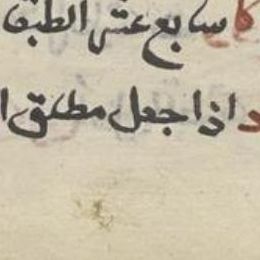 سابع عشر الطبقا
واذا جعل مطلق ا